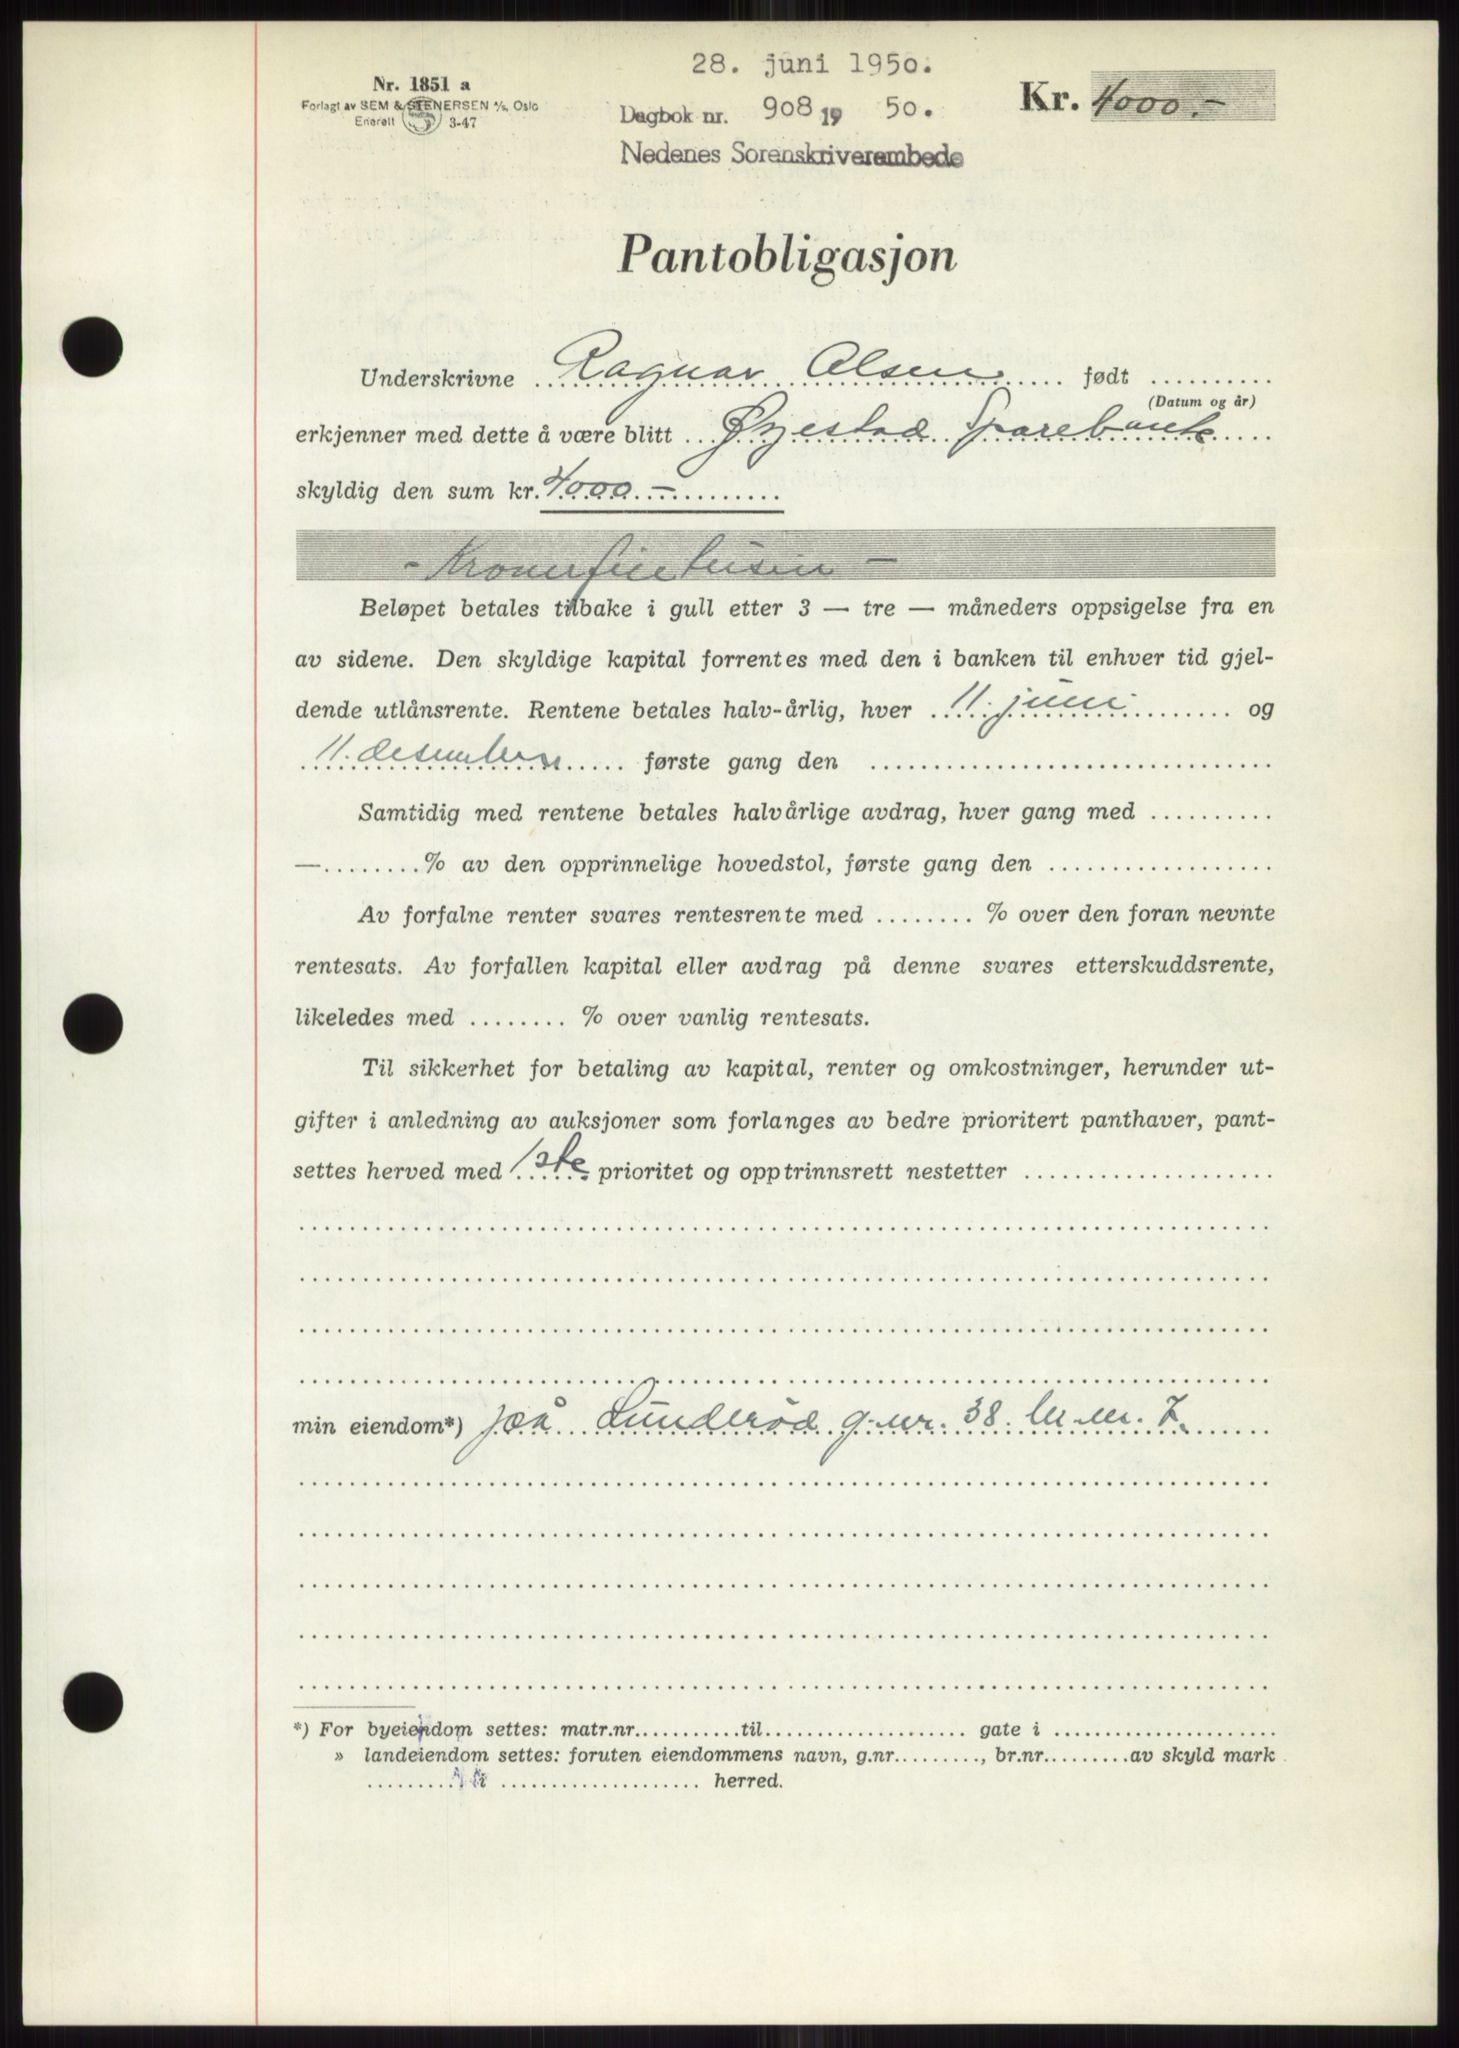 28. juni 1950.
Nr. 1851 a
Forlagt av SEM & STENERSEN A/S, Oslo
Enerett 3-47
Dagbok nr. 908 19 50.
Nedenes Sorenskriverembede
Kr. 4000.-
Pantobligasjon
Underskrivne Ragnar Olsen født ..........
(Datum og år)
erkjenner med dette å være blitt Øyestad Sparebank
skyldig den sum kr. 4000 -
- Kroner firetusen -
Beløpet betales tilbake i gull etter 3 — tre — måneders oppsigelse fra en
av sidene. Den skyldige kapital forrentes med den i banken til enhver tid gjel-
dende utlånsrente. Rentene betales halv-årlig, hver 11. juni og
11. desember første gang den ..........
Samtidig med rentene betales halvårlige avdrag, hver gang med ..........
—........% av den opprinnelige hovedstol, første gang den ..........
Av forfalne renter svares rentesrente med ........ % over den foran nevnte
rentesats. Av forfallen kapital eller avdrag på denne svares etterskuddsrente,
likeledes med ........ % over vanlig rentesats.
Til sikkerhet for betaling av kapital, renter og omkostninger, herunder ut-
gifter i anledning av auksjoner som forlanges av bedre prioritert panthaver, pant-
settes herved med 1ste prioritet og opptrinnsrett nestetter ..........
min eiendom*) på Lunderød g.nr. 38. br.nr. 7.
*) For byeiendom settes: matr.nr...........til.................... gate i ......................
» landeiendom settes: foruten eiendommens navn, g.nr........., br.nr.........av skyld mark
.......... i .................... herred.